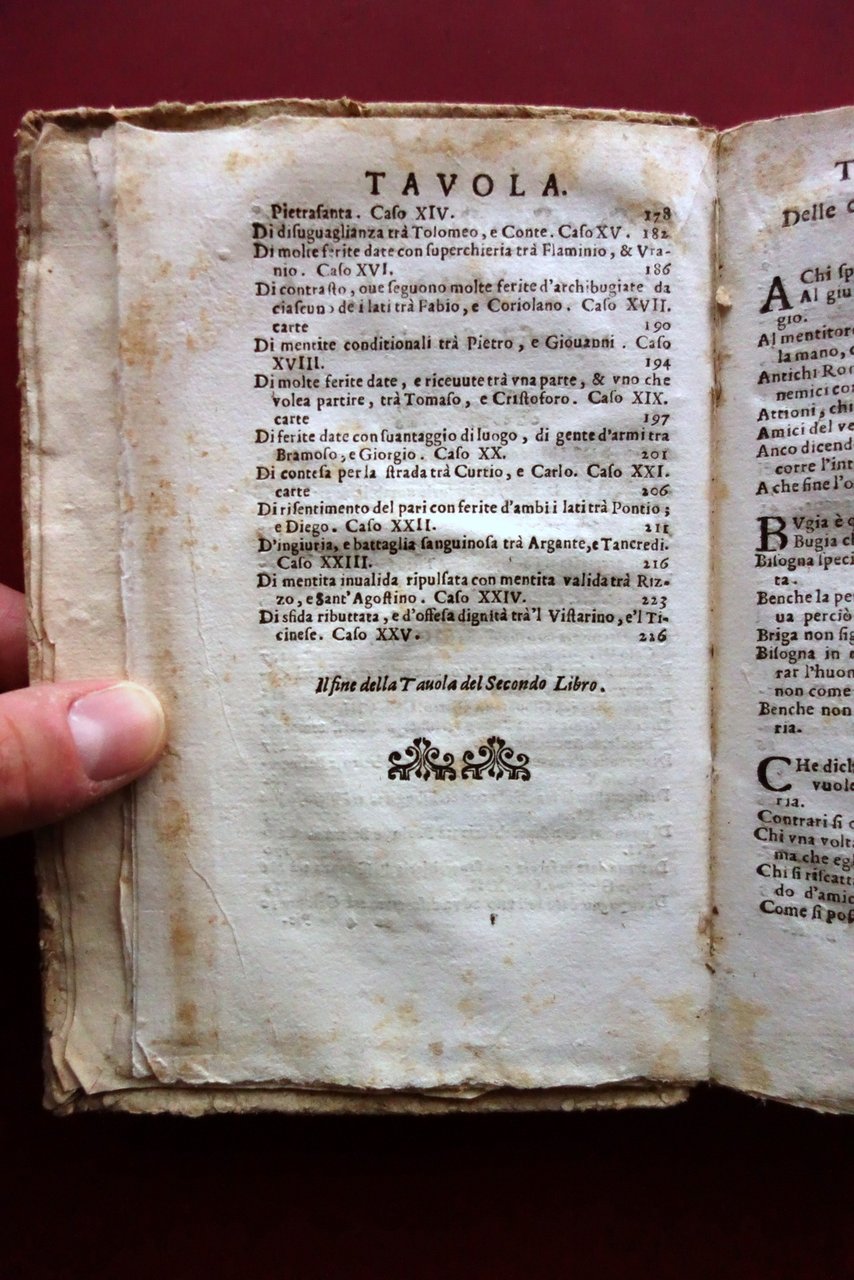 TAVOLA.
Pietraſanta. Caſo XIV. 178
Di diſuguaglianza trà Tolomeo, e Conte. Caſo XV. 182
Di molte ferite date con ſuperchieria trà Flaminio, & Vra-
nio. Caſo XVI. 186
Di contraſto, oue ſeguono molte ferite d'archibugiate da
ciaſcuno de i lati trà Fabio, e Coriolano. Caſo XVII.
carte 190
Di mentite conditionali trà Pietro, e Giouanni. Caſo
XVIII. 194
Di molte ferite date, e riceuute trà vna parte, & vno che
volea partire, trà Tomaſo, e Criſtoforo. Caſo XIX.
carte 197
Di ferite date con ſuantaggio di luogo, di gente d'armi tra
Bramoſo, e Giorgio. Caſo XX. 201
Di conteſa per la ſtrada trà Curtio, e Carlo. Caſo XXI.
carte 206
Di riſentimento del pari con ferite d'ambi i lati trà Pontio;
e Diego. Caſo XXII. 211
D'ingiuria, e battaglia ſanguinoſa trà Argante, e Tancredi.
Caſo XXIII. 216
Di mentita inualida ripulſata con mentita valida trà Riz-
zo, e Sant'Agoſtino. Caſo XXIV. 223
Di sfida ributtata, e d'offeſa dignità trà'l Viſtarino, e'l Ti-
cineſe. Caſo XXV. 226
Il fine della Tauola del Secondo Libro.
T
Delle
A Chi ſp
Al giu
gio.
Al mentitore
la mano,
Antichi Ro
nemici co
Attioni, chi
Amici del ve
Anco dicend
corre l'int
A che fine l'o
BVgia è
Bugia ch
Biſogna ſpeci
ta.
Benche la pe
ua perciò
Briga non ſi
Biſogna in
rar l'huo
non come
Benche non
ria.
CHe dich
vuole
ria.
Contrari ſi
Chi vna volt
ma che eg
Chi ſi riſcatt
do d'amic
Come ſi poſ